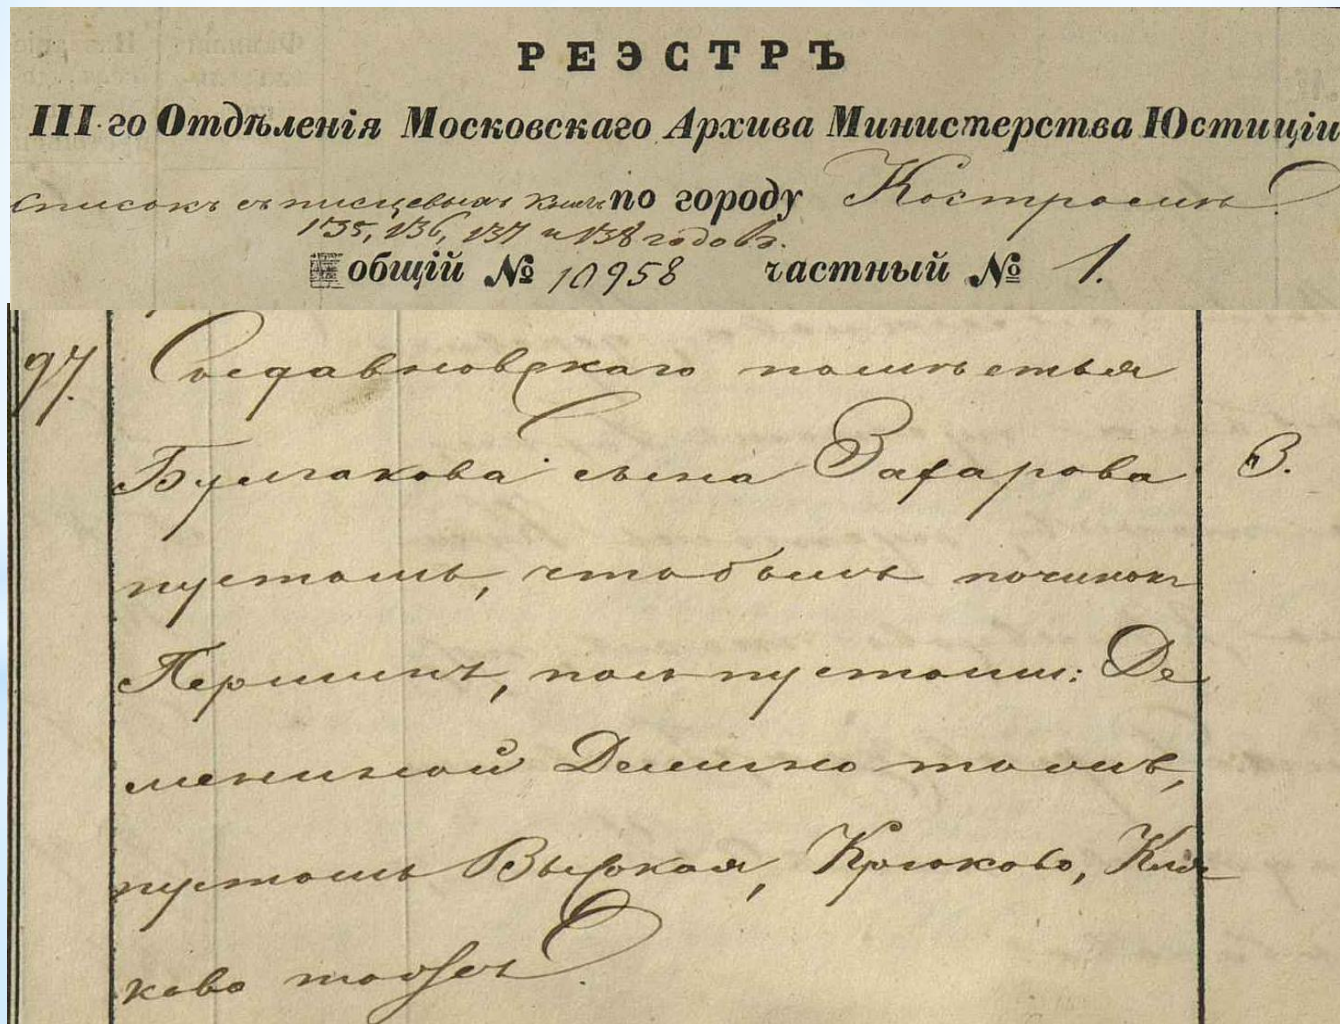 РЕЭСТРЪ
III-го Отдѣленія Московскаго Архива Министерства Юстиціи
Списокъ съ писцевыхъ книгъ по городу Костромѣ
135, 136, 137 и 138 годовъ.
общій № 10958 частный № 1.
97. помѣстья
Булгакова сына Захарова 3.
пустошь, что былъ починокъ
Першинъ, пол пустоши: Де
мениной Демино тоже,
пустошь Высокая, Крюково, Кля
ково тожъ.